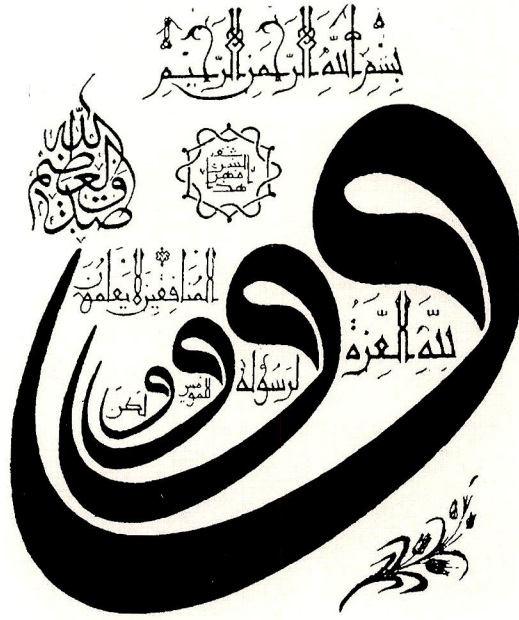 بِسْمِ اللَّهِ الرَّحْمَنِ الرَّحِيمِ
صدق الله العظيم
و لِلَّهِ الْعِزَّةُ
و لِرَسُولِهِ
و للمؤمنين
و لَكِنَّ
الْمُنَافِقِينَ لَا يَعْلَمُونَ